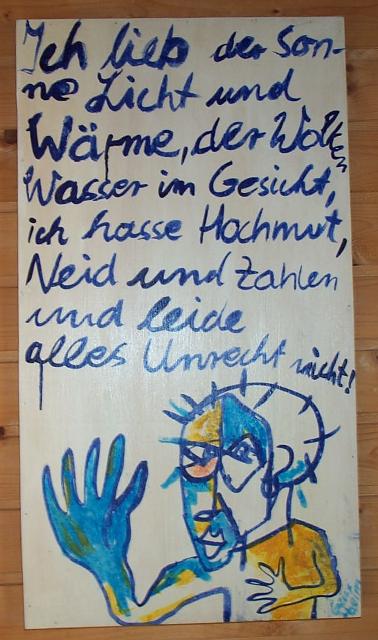 Ich lieb der Son-
ne Licht und
Wärme, der Wolken
Wasser im Gesicht,
ich hasse Hochmut,
Neid und Zahlen
und leide
alles Unrecht nicht!